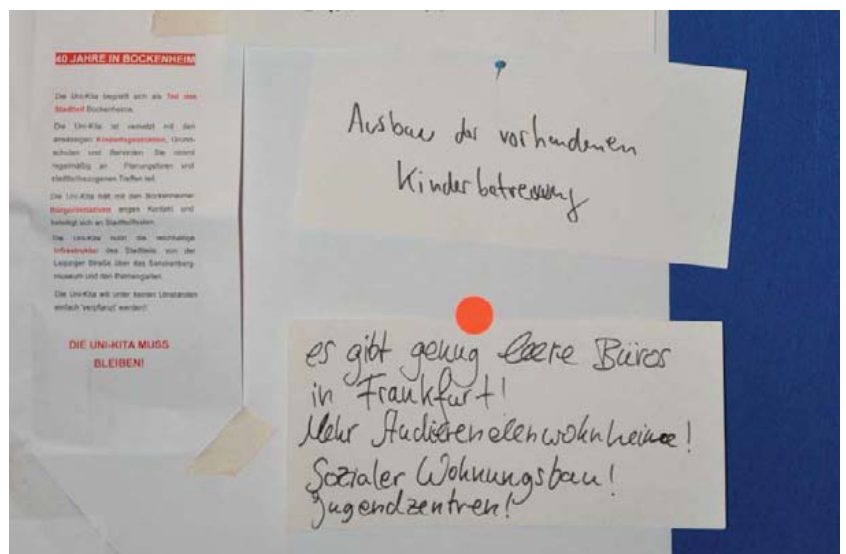 40 JAHRE IN BOCKENHEIM
Die Uni-Kita begreift sich als Teil des
Stadtteil Bockenheims.
Die Uni-Kita ist vernetzt mit den
ansässigen Kindertagesstätten, Grund-
schulen und Behörden. Sie nimmt
regelmäßig an Planungsforen und
stadtteilbezogenen Treffen teil.
Die Uni-Kita hält mit den Bockenheimer
Bürgerinitiativen engen Kontakt und
beteiligt sich an Stadtteilfesten.
Die Uni-Kita nutzt die reichhaltige
Infrastruktur des Stadtteils, von der
Leipziger Straße über das Senckenberg-
museum und den Palmengarten.
Die Uni-Kita will unter keinen Umständen
einfach 'verpflanzt' werden!
DIE UNI-KITA MUSS
BLEIBEN!
Ausbau der vorhandenen
Kinderbetreuung
es gibt genug leere Büros
in Frankfurt!
Mehr Studierendenwohnheime!
Sozialer Wohnungsbau!
Jugendzentren!